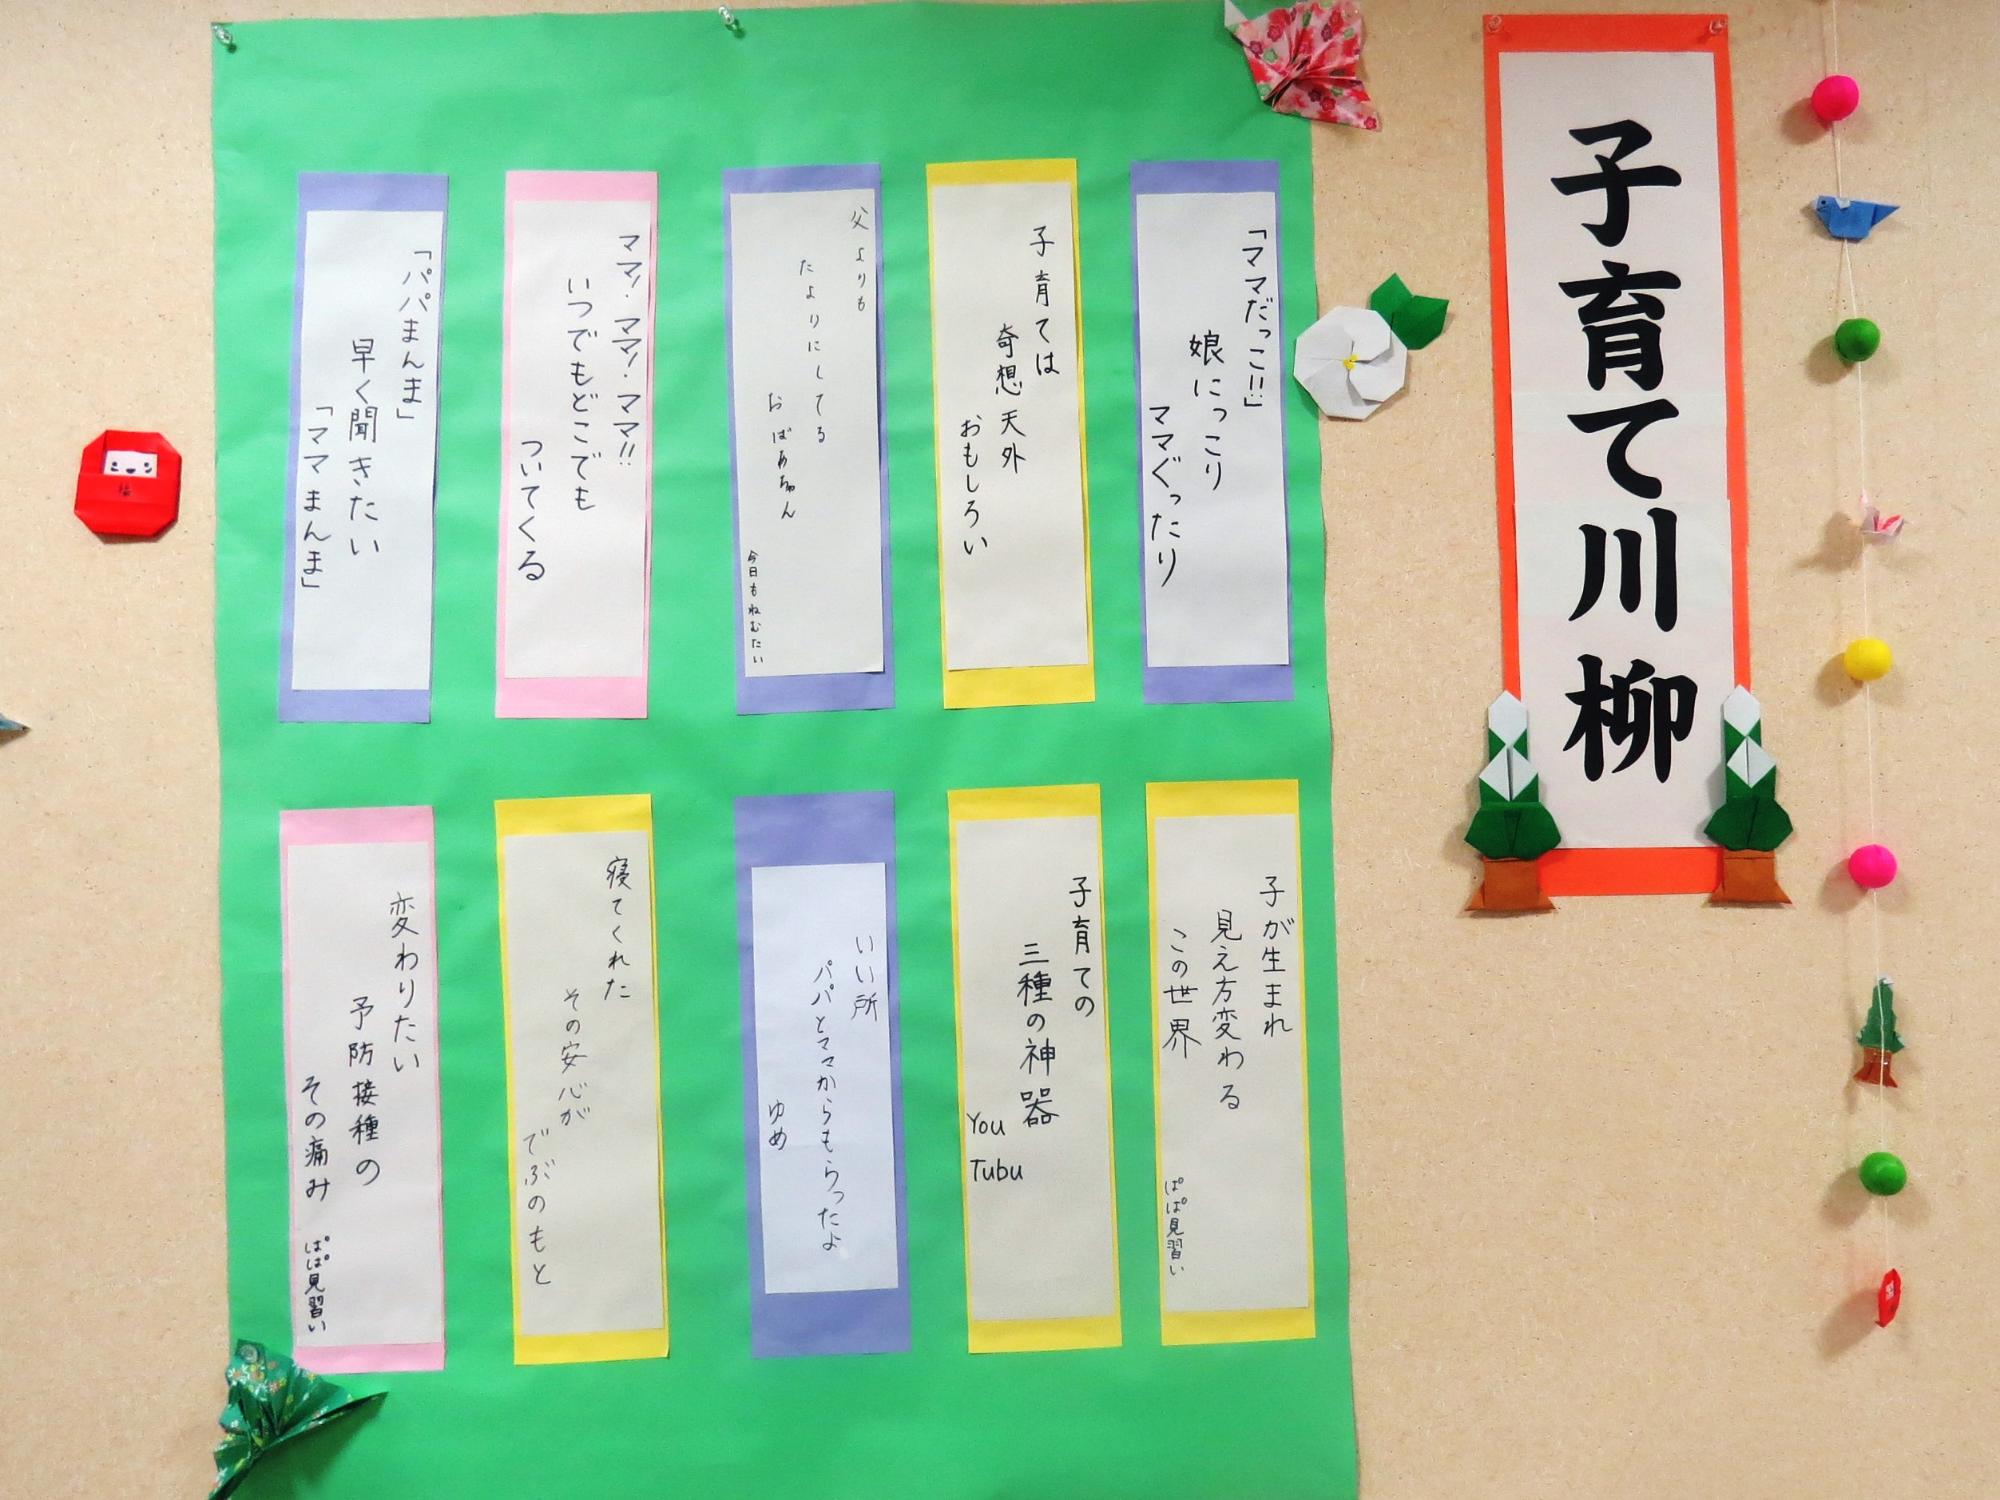 子育て川柳
「ママだっこ!!」
娘にっこり
ママぐったり
子育ては
奇想天外
おもしろい
父よりも
たよりにしてる
おばあちゃん
今日もねむたい
ママ!・ママ!・ママ!!
いつでもどこでも
ついてくる
「パパまんま」
早く聞きたい
「ママまんま」
子が生まれ
見え方変わる
この世界
ぱぱ見習い
子育ての
三種の神器
You
Tubu
いい所
パパとママからもらったよ
ゆめ
寝てくれた
その安心が
でぶのもと
変わりたい
予防接種の
その痛み
ぱぱ見習い